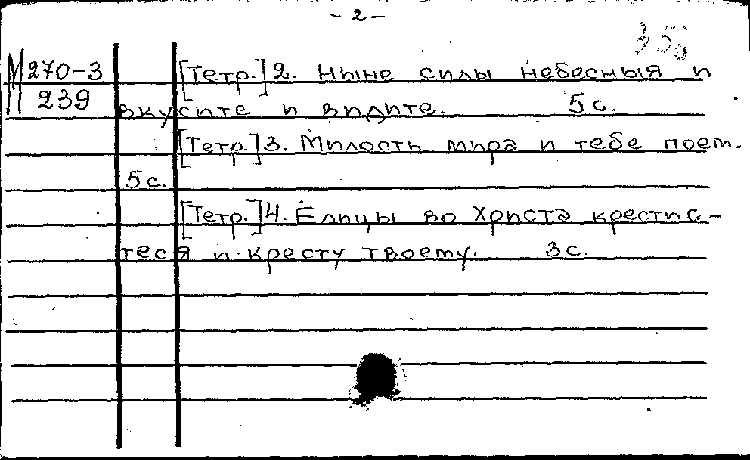 - 2 -
М 270-3 [Тетр.] 2. Ныне силы небесныя и
239 вкусите и видите. 5 с.
[Тетр.] 3. Милость мира и тебе поем.
5 с.
[Тетр.] 4. Елицы во Христа крестис-
теся и кресту твоему. 3 с.